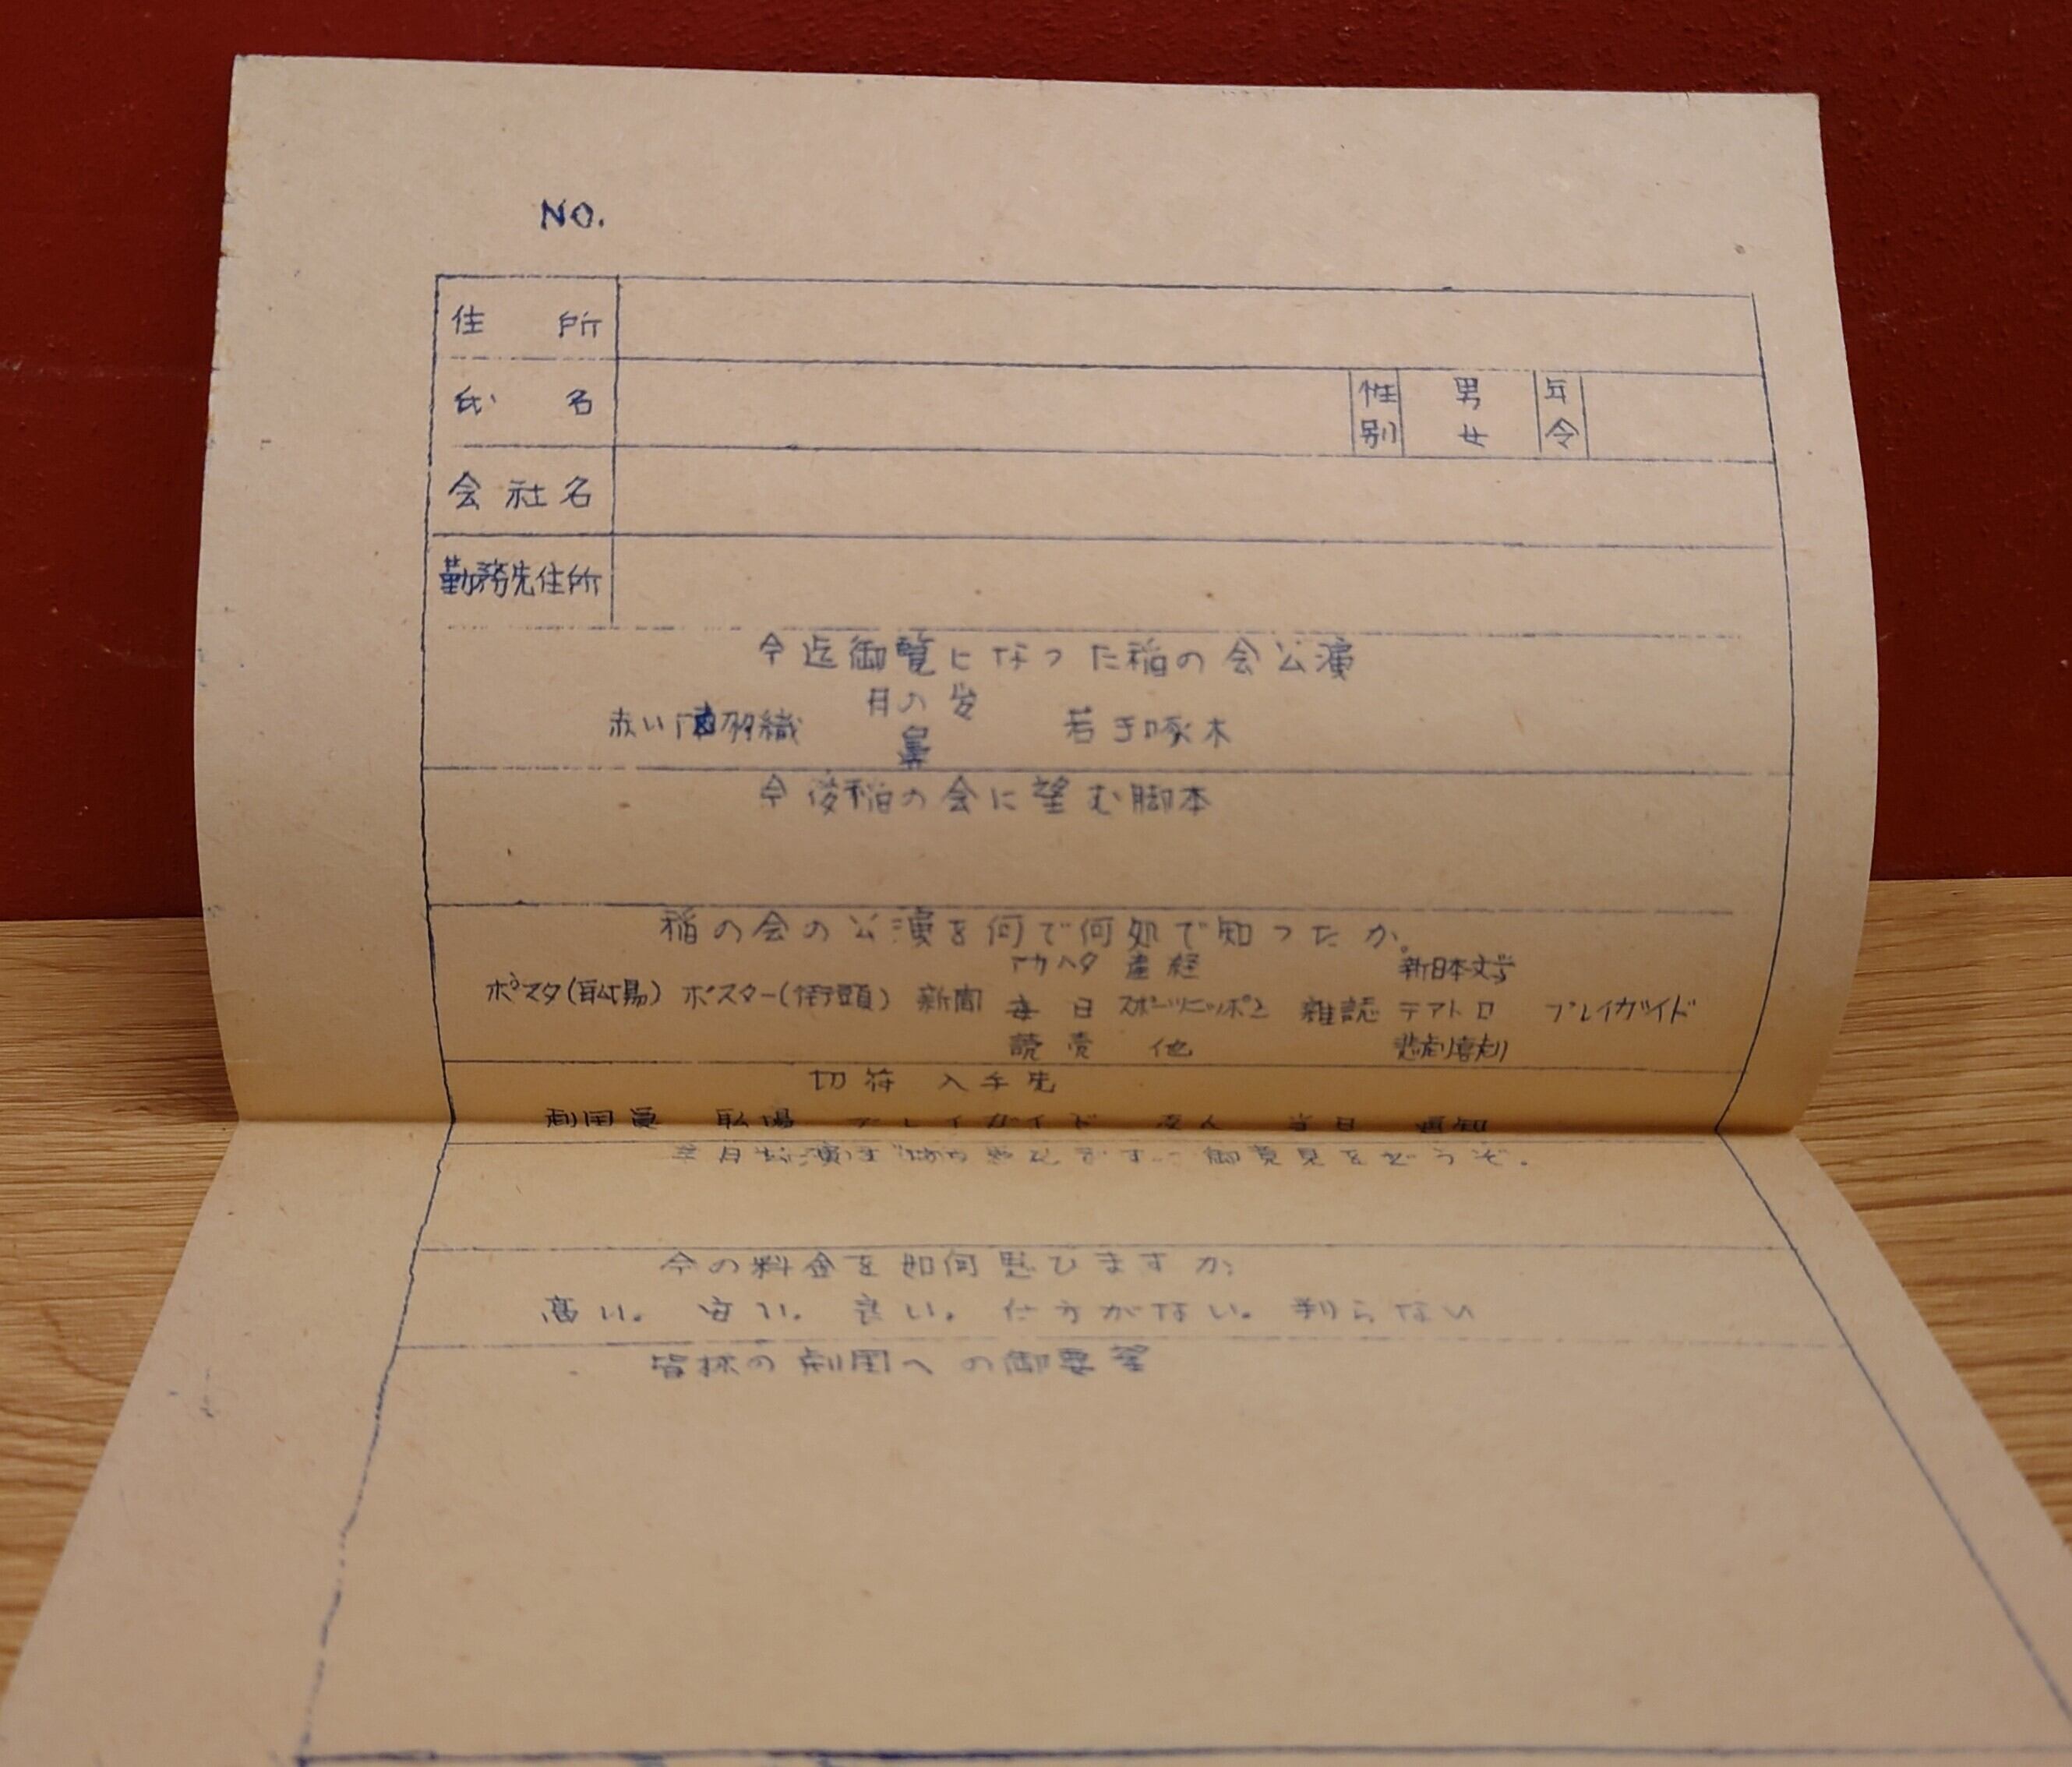 NO.
住所
氏名 性別 男 女 年令
会社名
勤務先住所
今迄御覧になった稲の会公演
月の出
赤い陣羽織 若き啄木
鼻
今後稲の会に望む脚本
稲の会の公演を何で何処で知ったか。
アカハタ 産経 新日本文学
ポスタ(職場) ポスター(街頭) 新聞 毎日 スポーツニッポン 雑誌 テアトロ プレイガイド
読売 他 悲劇喜劇
切符入手先
劇団員 職場 プレイガイド 友人 当日 通知
御意見をどうぞ.
今の料金を如何思ひますか
高い. 安い. 良い. 仕方がない. 判らない
皆様の劇団への御要望